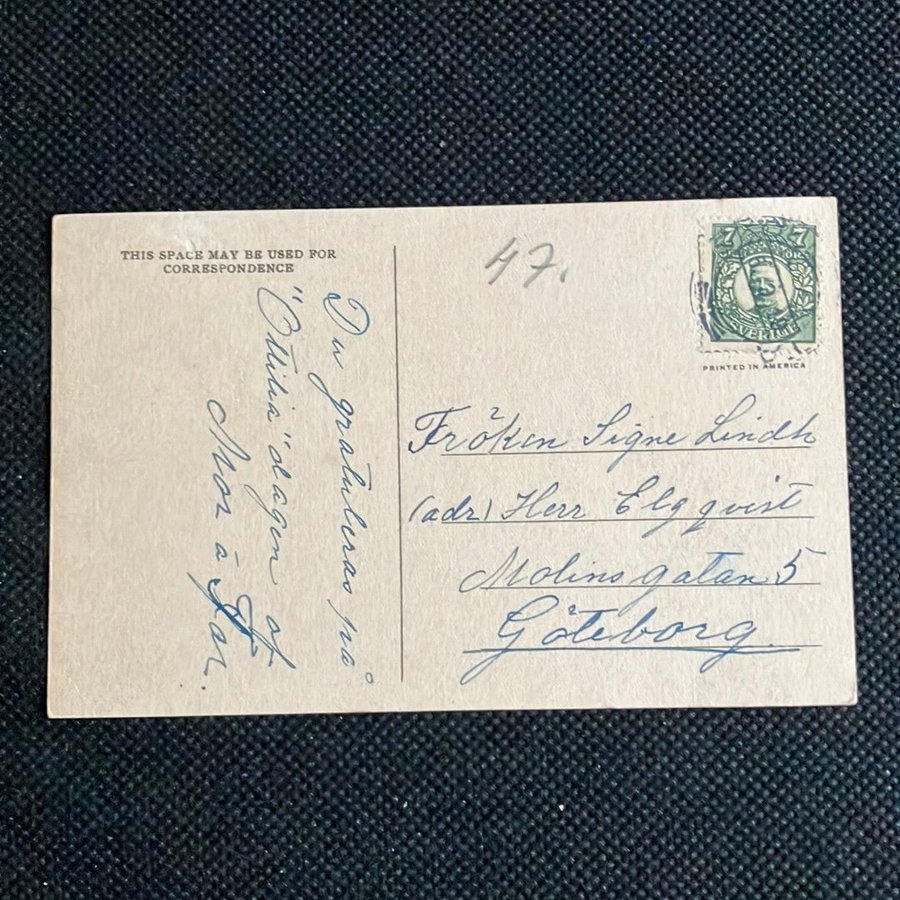 THIS SPACE MAY BE USED FOR
CORRESPONDENCE
Du gratuleras på
"Ottilia"dagen af
Mor å Far.
47.
7 7
SVERIGE
PRINTED IN AMERICA
Fröken Signe Lindh
(adr) Herr Elgqvist
Molinsgatan 5
Göteborg.